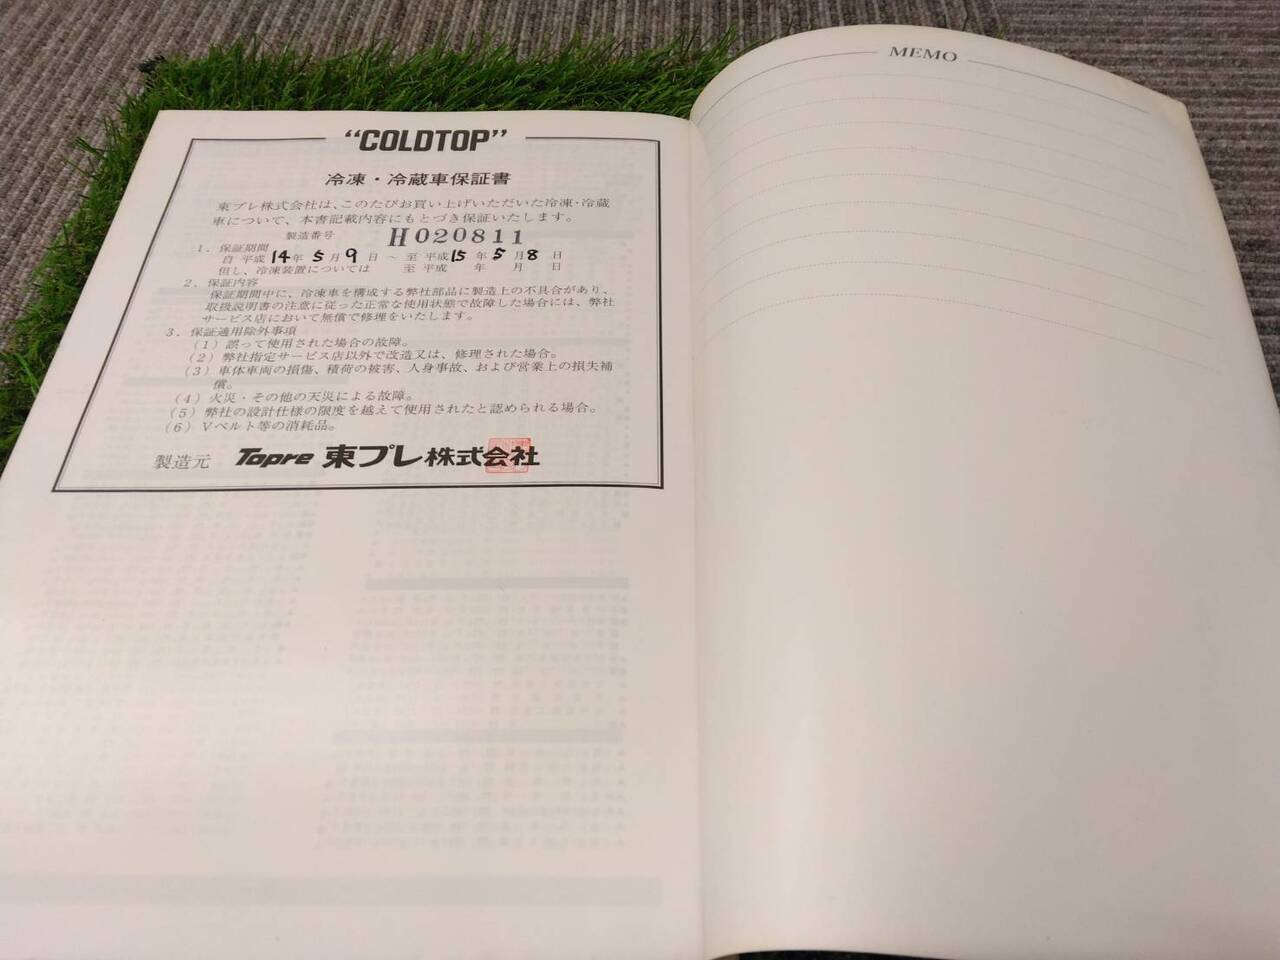 “COLDTOP”
冷凍・冷蔵車保証書
東プレ株式会社は、このたびお買い上げいただいた冷凍・冷蔵
車について、本書記載内容にもとづき保証いたします。
製造番号 H020811
1．保証期間
自 平成 14年 5月 9日 ～ 至 平成 15年 5月 8日
但し、冷凍装置については 至 平成 年 月 日
2．保証内容
保証期間中に、冷凍車を構成する弊社部品に製造上の不具合があり、
取扱説明書の注意に従った正常な使用状態で故障した場合には、弊社
サービス店において無償で修理をいたします。
3．保証適用除外事項
（1）誤って使用された場合の故障。
（2）弊社指定サービス店以外で改造又は、修理された場合。
（3）車体車両の損傷、積荷の被害、人身事故、および営業上の損失補
償。
（4）火災・その他の天災による故障。
（5）弊社の設計仕様の限度を越えて使用されたと認められる場合。
（6）Vベルト等の消耗品。
製造元 Topre 東プレ株式会社
MEMO